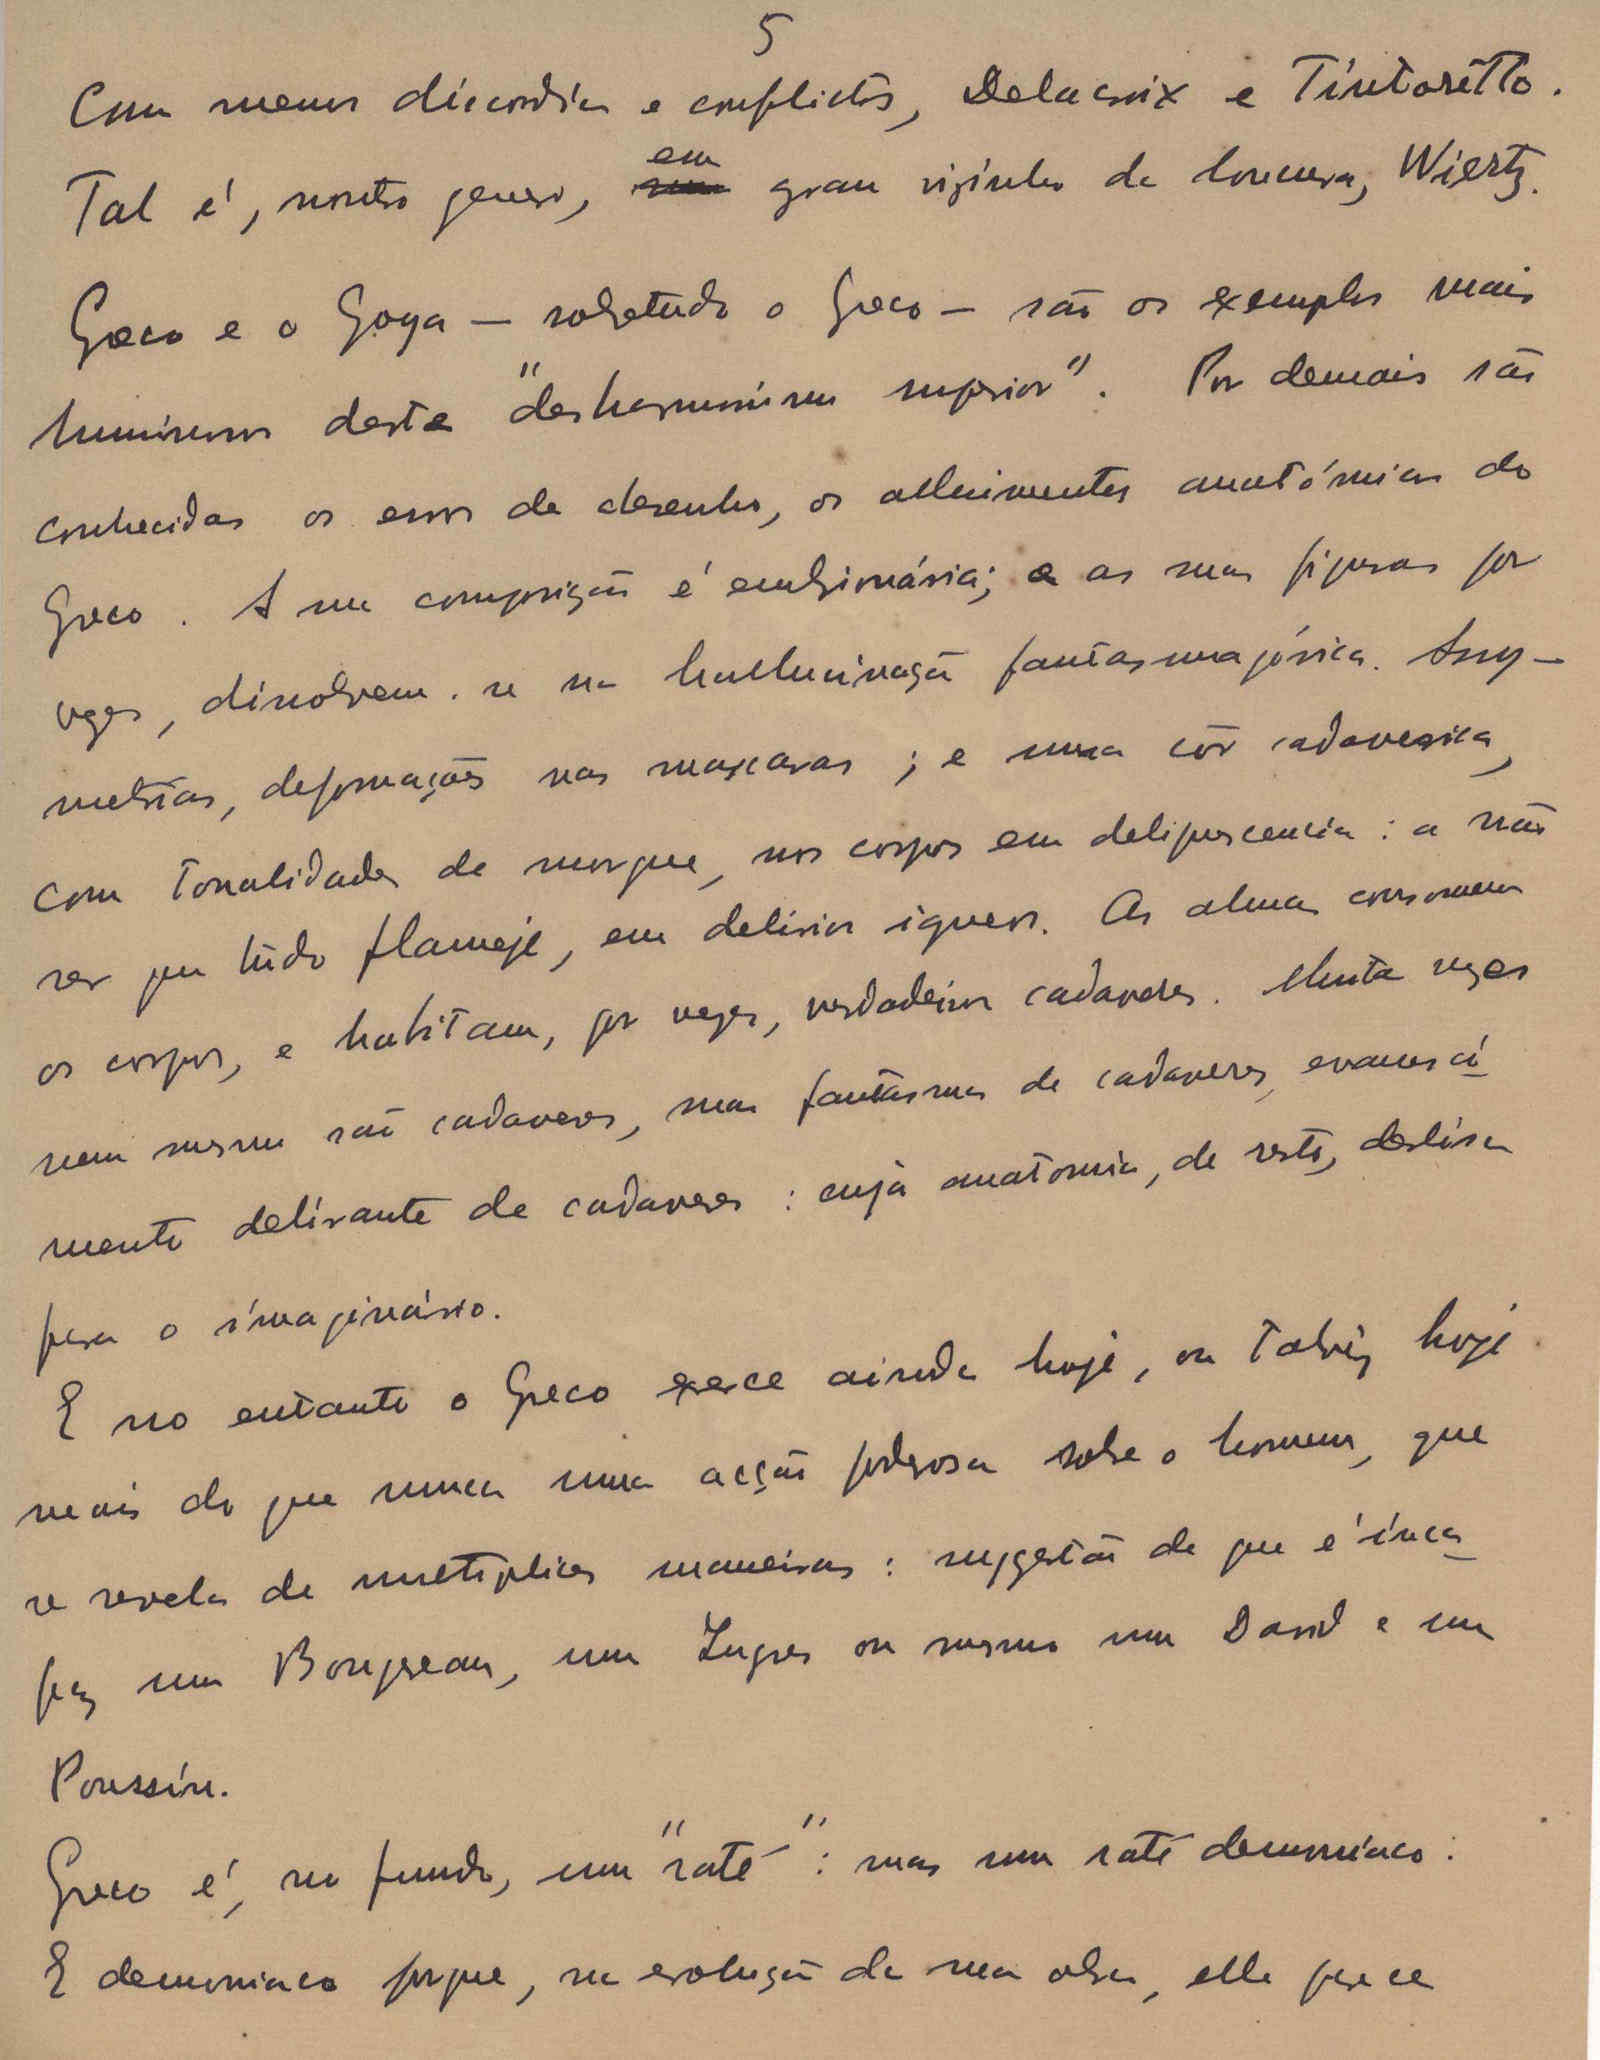 5
Com menos discordias e conflictos, Delacroix e Tintoretto.
Tal é, noutro genero, em grau visinho da loucura, Wiertz.
Greco e o Goya — sobretudo o Greco — são os exemplos mais
luminosos deste "desharmonismo superior". Por demais são
conhecidas os erros de desenho, os alluimentos anatómicos do
Greco. A sua composição é embrionária; e as suas figuras por
vezes, dissolvem-se na hallucinação fantasmagórica. Assy-
metrias, deformações nas mascaras; e uma côr cadaverica,
com tonalidades de morgue, nos corpos em deliquescencia: a não
ser que tudo flameje, em delirios igneos. As almas consomem
os corpos, e habitam, por vezes, verdadeiros cadaveres. Muita vezes
nem mesmo são cadaveres, mas fantasmas de cadaveres, evanesci-
mento delirante de cadaveres: cuja anatomia, de resto, deslisa
para o imaginário.
E no entanto o Greco exerce ainda hoje, ou talvez hoje
mais do que nunca uma acção poderosa sobre o homem, que
se revela de multiplices maneiras: suggestão de que é inca-
paz um Bougereau, um Ingres ou mesmo um David e um
Poussin.
Greco é, no fundo, um "raté": mas um raté demoniaco.
E demoniaco porque, na evolução da sua obra, elle parece